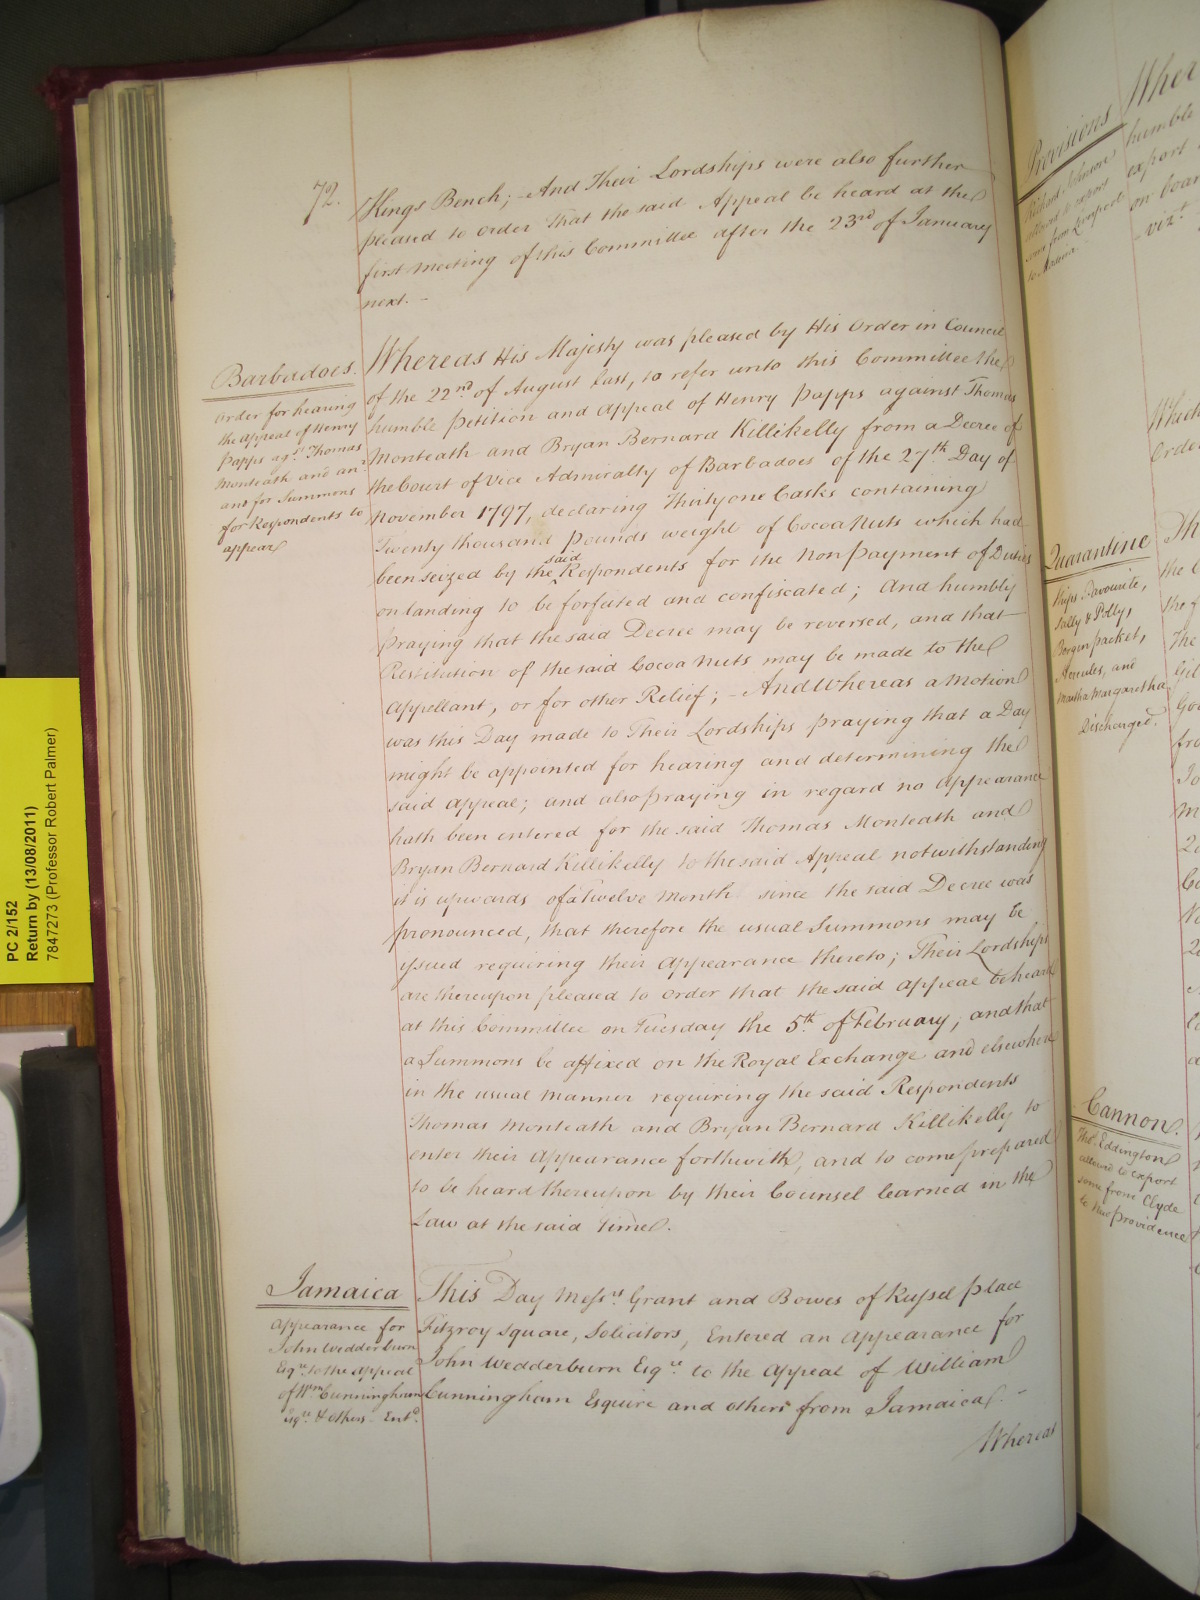 72.
Kings Bench; - And Their Lordships were also further
pleased to order That the said Appeal be heard at the
first meeting of this Committee after the 23rd of January
next. -
Barbadoes.
Order for hearing
the Appeal of Henry
Papps agst Thomas
Monteath and anr
and for Summons
for Respondents to
appear
Whereas His Majesty was pleased by His Order in Council
of the 22nd of August last, to refer unto this Committee the
humble Petition and Appeal of Henry Papps against Thomas
Monteath and Bryan Bernard Killikelly from a Decree of
the Court of Vice Admiralty of Barbadoes of the 27th Day of
November 1797, declaring Thirty one Casks containing
Twenty thousand pounds weight of Cocoa Nuts which had
been seized by the said Respondents for the Nonpayment of Duties
on landing to be forfeited and confiscated; And humbly
praying that the said Decree may be reversed, and that
Restitution of the said Cocoa Nuts may be made to the
Appellant, or for other Relief; - And Whereas a Motion
was this Day made to Their Lordships praying that a Day
might be appointed for hearing and determining the
said Appeal; and also praying in regard no Appearance
hath been entered for the said Thomas Monteath and
Bryan Bernard Killikelly to the said Appeal notwithstanding
it is upwards of a twelve Month since the said Decree was
pronounced, that therefore the usual Summons may be
issued requiring their Appearance thereto; Their Lordships
are thereupon pleased to order that the said Appeal be heard
at this Committee on Tuesday the 5th of February; and that
a Summons be affixed on the Royal Exchange and elsewhere
in the usual manner requiring the said Respondents
Thomas Monteath and Bryan Bernard Killikelly to
enter their Appearance forthwith, and to come prepared
to be heard thereupon by their Counsel learned in the
Law at the said time.
Jamaica
Appearance for
John Wedderburn
Esqre to the Appeal
of Wm Cunningham
Esqre & others - Entd.
This Day Messrs Grant and Bowes of Russel place
Fitzroy Square, Solicitors, Entered an Appearance for
John Wedderburn Esqre to the Appeal of William
Cunningham Esquire and others from Jamaica. -
Whereas
PC 2/152
Return by (13/08/2011)
7847273 (Professor Robert Palmer)
Provisions
Richard Johnson
allowed to export
some from Liverpool
to
Wher
humble
export
on boar
vizt
Which
Order
Quarantine
Ships Favourite,
Sally & Polly,
Bergen packet,
Hercules, and
Martha Margaretha
Discharged.
the
the f
The
Gil
God
fro
Jo
Cannon
Thos Eddington
allowed to export
some from Clyde
to New providence